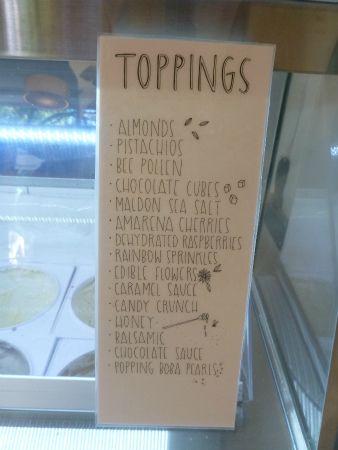 TOPPINGS
· ALMONDS
· PISTACHIOS
· BEE POLLEN
· CHOCOLATE CUBES
· MALDON SEA SALT
· AMARENA CHERRIES
· DEHYDRATED RASPBERRIES
· RAINBOW SPRINKLES
· EDIBLE FLOWERS
· CARAMEL SAUCE
· CANDY CRUNCH
· HONEY
· BALSAMIC
· CHOCOLATE SAUCE
· POPPING BOBA PEARLS